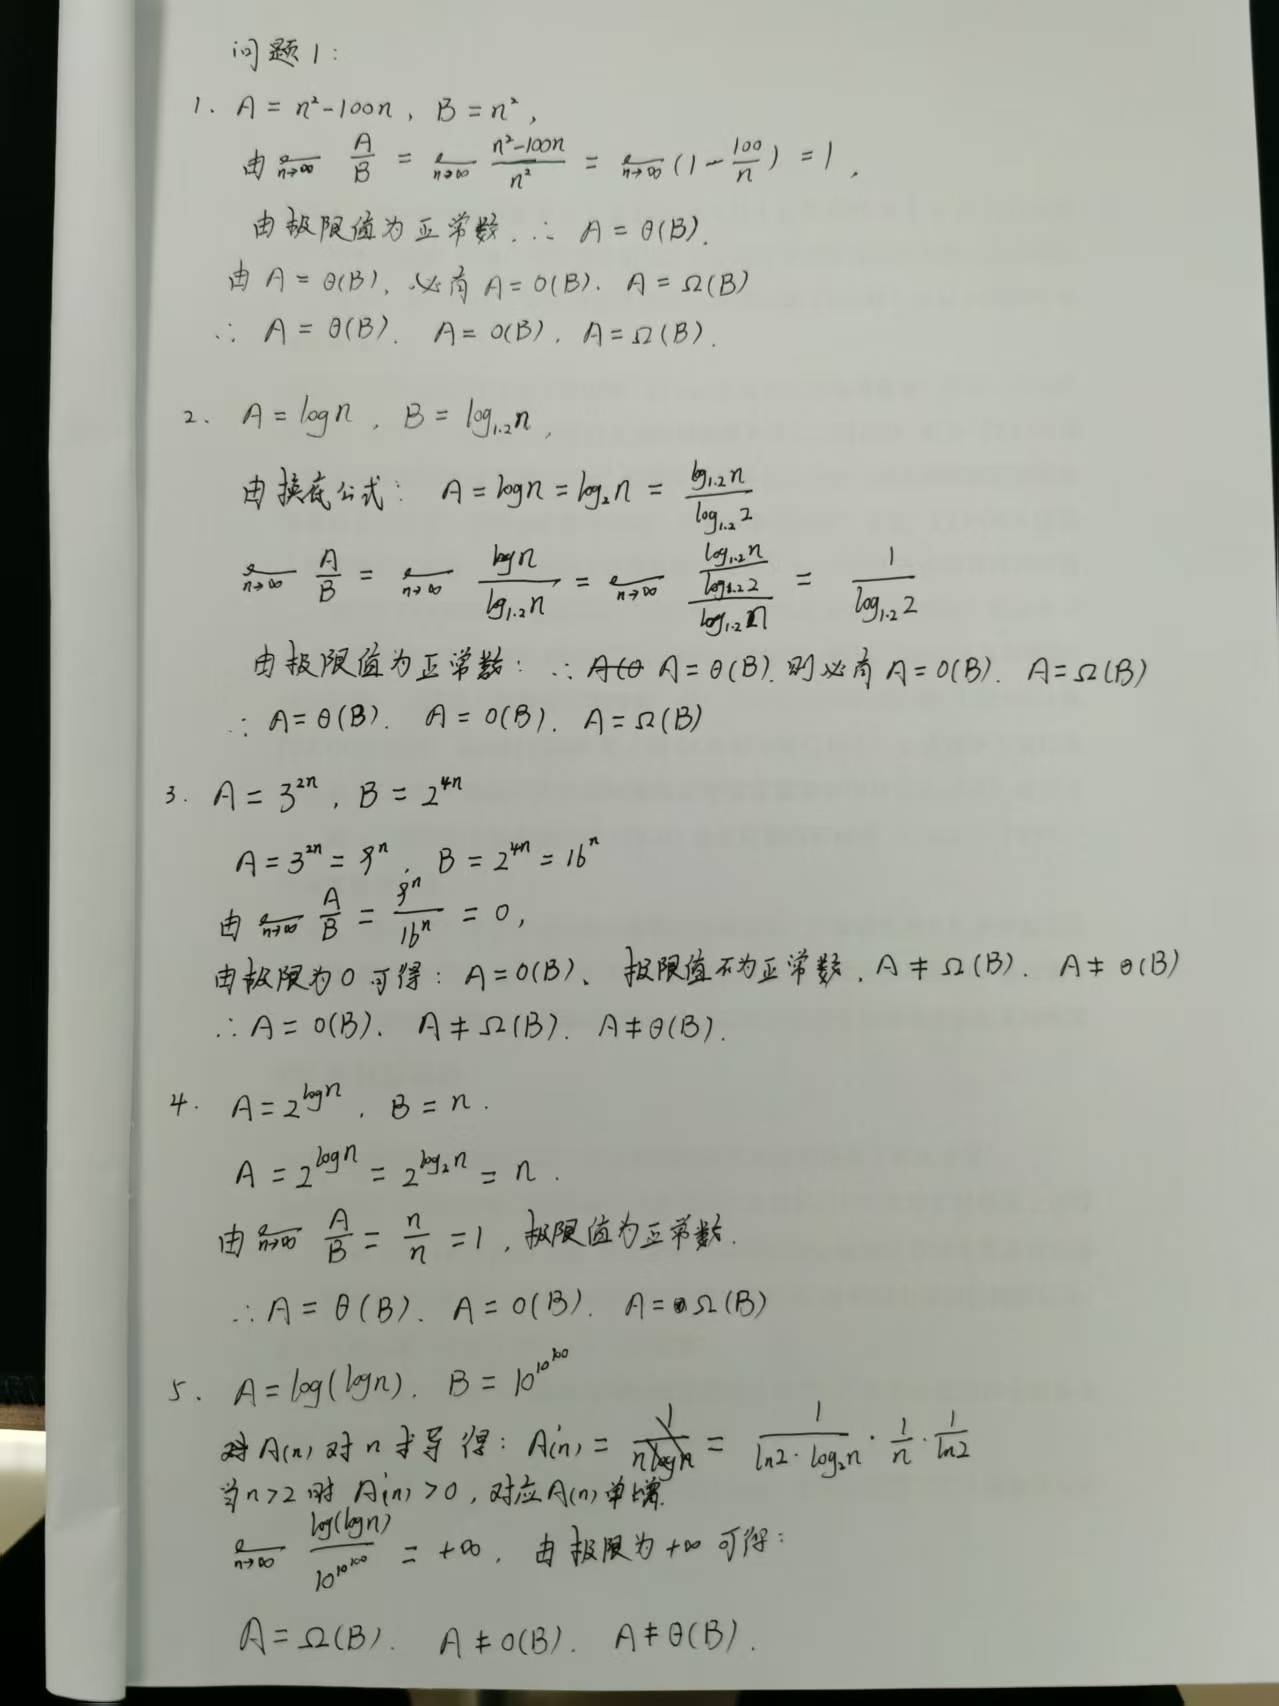 问题1:
1. A = n²-100n, B = n²,
由 ℓ n→∞ A/B = ℓ n→∞ (n²-100n)/n² = ℓ n→∞ (1 - 100/n) = 1,
由极限值为正常数. ∴ A = θ(B).
由 A = θ(B), 必有 A = O(B). A = Ω(B)
∴ A = θ(B). A = O(B). A = Ω(B).
2. A = logn, B = log₁.₂n,
由换底公式: A = logn = log₂n = log₁.₂n / log₁.₂2
ℓ n→∞ A/B = ℓ n→∞ logn / log₁.₂n = ℓ n→∞ (log₁.₂n / log₁.₂2) / log₁.₂n = 1 / log₁.₂2
由极限值为正常数: ∴ A = θ(B). 则必有 A = O(B). A = Ω(B)
∴ A = θ(B). A = O(B). A = Ω(B)
3. A = 3²ⁿ, B = 2⁴ⁿ
A = 3²ⁿ = 9ⁿ, B = 2⁴ⁿ = 16ⁿ
由 ℓ n→∞ A/B = 9ⁿ/16ⁿ = 0,
由极限为0可得: A = O(B)、极限值不为正常数. A ≠ Ω(B). A ≠ θ(B)
∴ A = O(B). A ≠ Ω(B). A ≠ θ(B).
4. A = 2^logn. B = n.
A = 2^logn = 2^log₂n = n.
由 ℓ n→∞ A/B = n/n = 1, 极限值为正常数.
∴ A = θ(B). A = O(B). A = Ω(B)
5. A = log(logn). B = 10^10^100
A(n) 对 n 求导得: A'(n) = 1/(nlogn) = 1/(ln2·log₂n) · 1/n · 1/ln2
当n>2时 A'(n) > 0, 对应A(n)单增.
ℓ n→∞ log(logn) / 10^10^100 = +∞, 由极限为+∞可得:
A = Ω(B). A ≠ O(B). A ≠ θ(B).